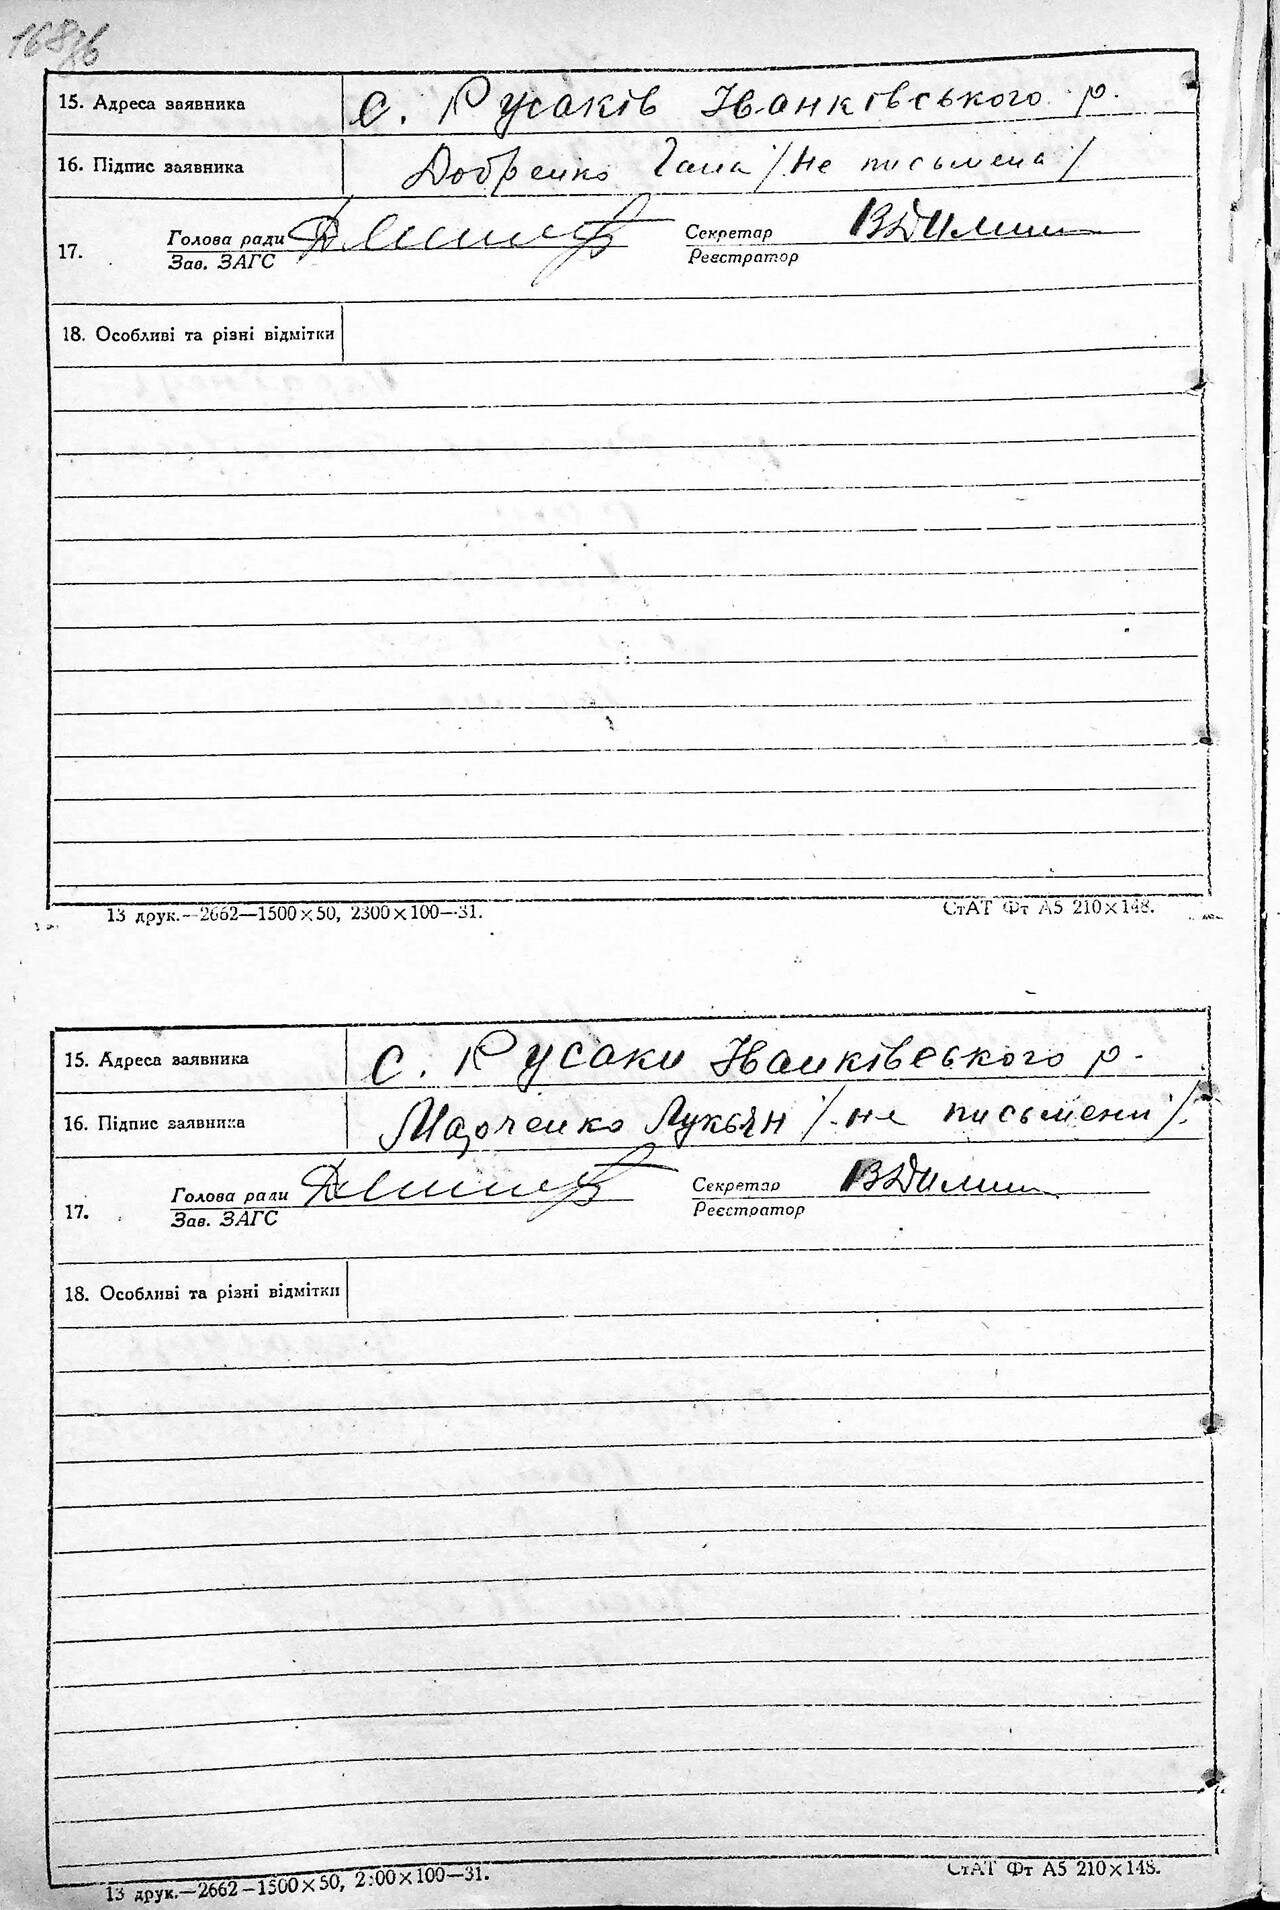 168зв
15. Адреса заявника с. Русаків Іванковського р.
16. Підпис заявника Добренко Гана /не письмена/
17. Голова ради Секретар
Зав. ЗАГС Реєстратор
18. Особливі та різні відмітки
13 друк.—2662—1500×50, 2300×100—31. СтАТ Фт А5 210×148.
15. Адреса заявника с. Русаки Іванківського р.
16. Підпис заявника Марченко Лукьян /не письмени/.
17. Голова ради Секретар
Зав. ЗАГС Реєстратор
18. Особливі та різні відмітки
13 друк.—2662—1500×50, 2:00×100—31. СтАТ Фт А5 210×148.